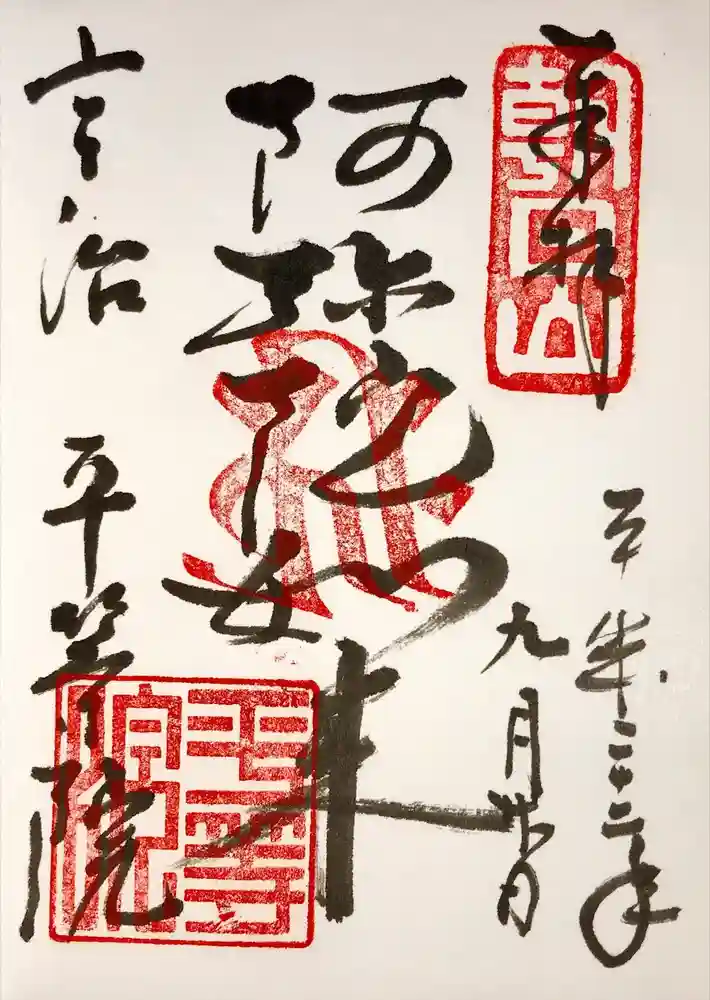 奉拝
朝日山
平成二十二年
九月
阿弥陀如来
宇治 平等院
平等院